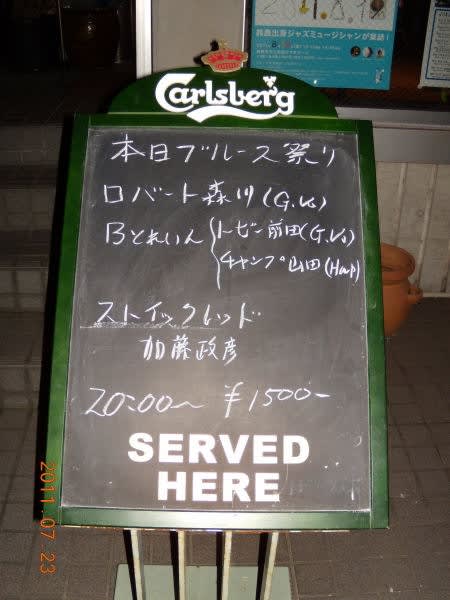 Carlsberg
本日ブルース祭り
ロバート森川(G.Vo)
Bとれいん トビー前田(G.Vo)
チャンプ山田(Harp)
ストイックレッド
加藤政彦
20:00〜 ¥1500-
SERVED
HERE
2011.07.23